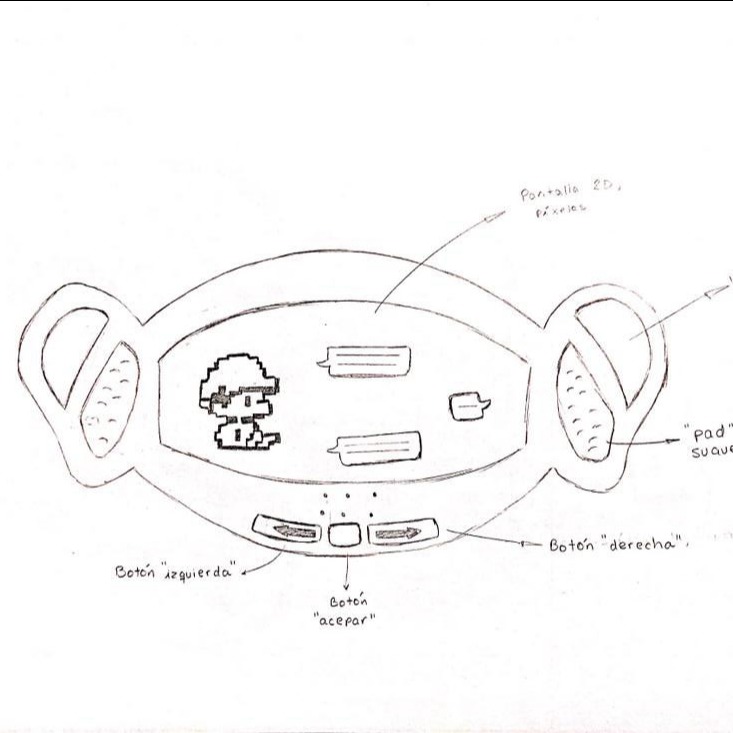 Pantalla 2D,
píxeles
"pad"
suave
Botón "derecha",
Botón "izquierda"
Botón
"acepar"